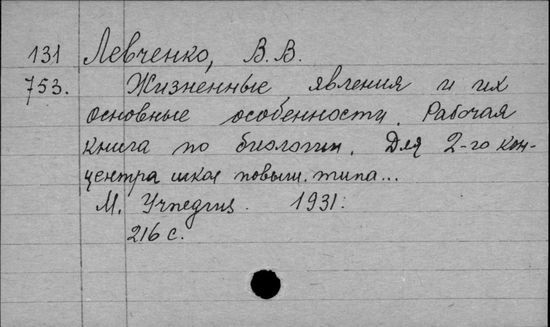 131 Левченко, В. В.
753. Жизненные явления и их
основные особенности. Рабочая
книга по биологии. Для 2-го кон-
центра школ повыш. типа...
М. Учпедгиз. 1931.
216 с.